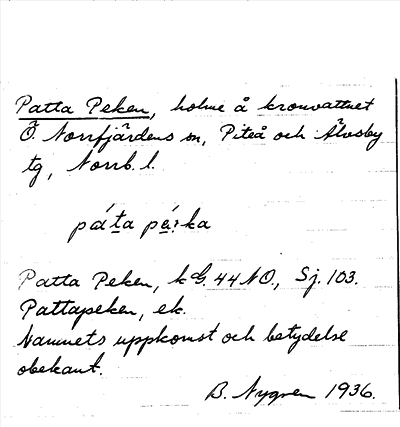 Patta Peken, holme å kronvattnet
Ö. Norrfjärdens sn, Piteå och Älvsby
tg, Norrb. l.
páta pá:ka
Patta Peken, k G. 44 NO., Sj. 103.
Pattapeken, ek.
Namnets uppkomst och betydelse
obekant.
B. Nygren 1936.